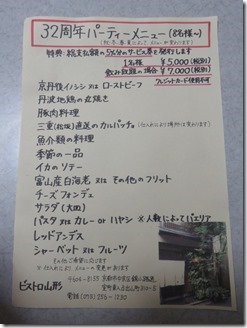 32周年パーティーメニュー(8名様〜)
特典:総支払額の5%分のサービス券を発行します
1名様 ¥5,000(税別)
飲み放題の場合 ¥7,000(税別)
クレジットカード使用不可
京丹後イノシシ 又は ローストビーフ
丹波地鶏の炊き
豚肉料理
三重(松阪)直送の カルパッチョ
魚介類の料理
季節の一品
イカのソテー
富山産白海老 又は その他のフリット
チーズフォンデュ
サラダ(大皿)
パスタ 又は カレー or ハヤシ ※人数においてパエリア
レッドアンデス
シャーベット 又は フルーツ
ビストロ山形